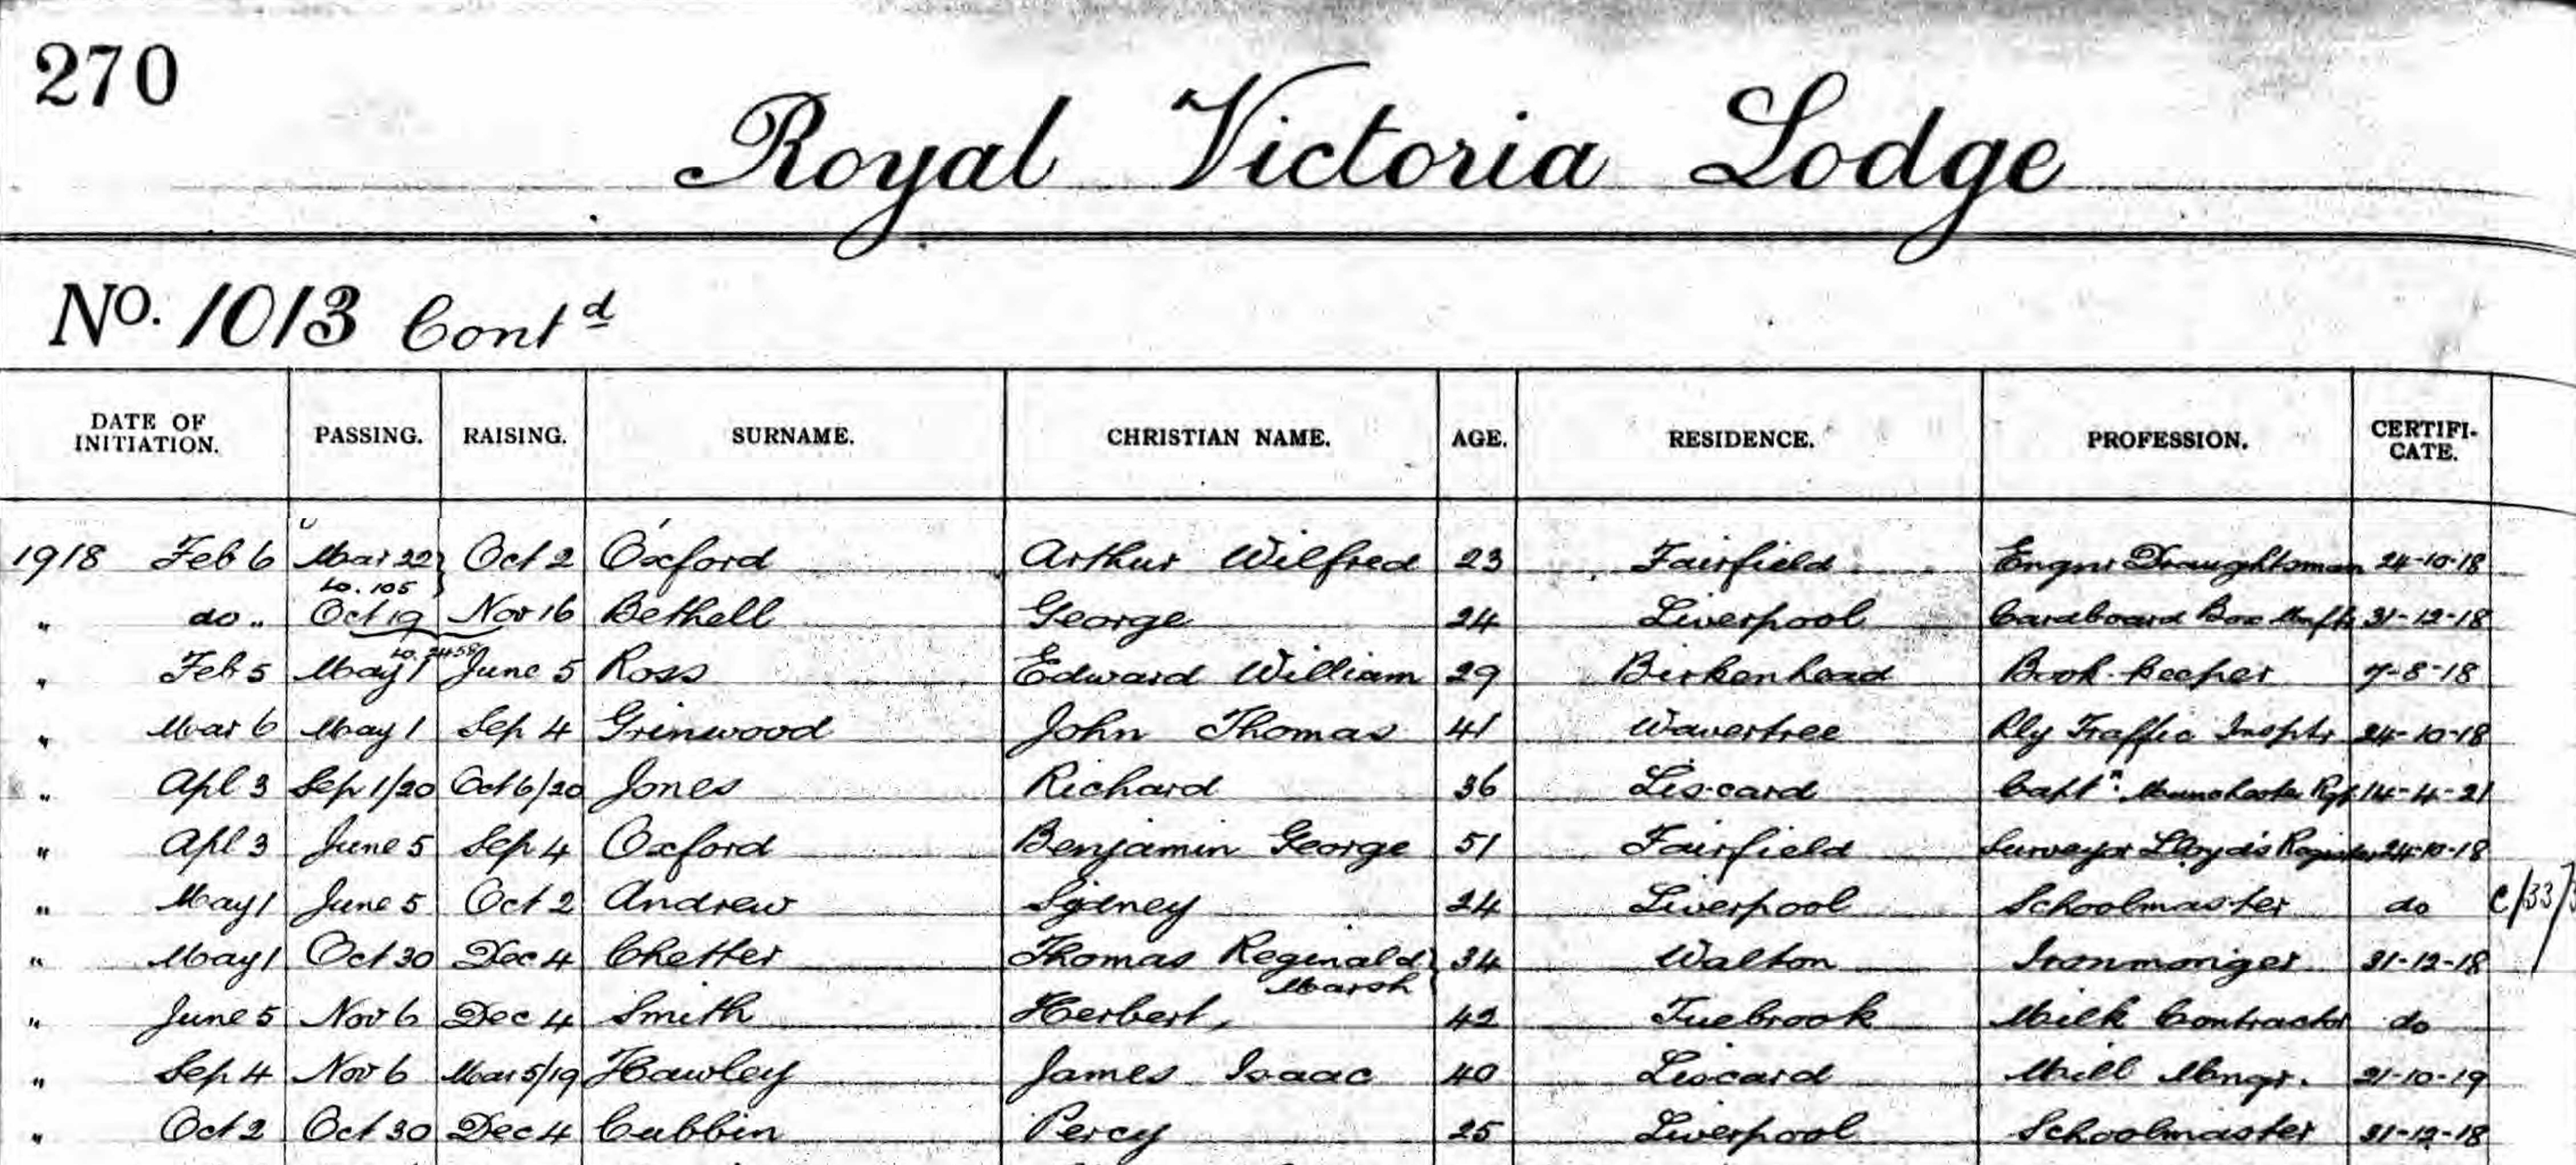 270
Royal Victoria Lodge
No. 1013 Contd
DATE OF INITIATION. PASSING. RAISING. SURNAME. CHRISTIAN NAME. AGE. RESIDENCE. PROFESSION. CERTIFI-CATE.
1918 Feb 6 Mar 22 Oct 2 Oxford Arthur Wilfred 23 Fairfield Engnr Draughtsman 24-10-18
Lo. 105
" do " Oct 19 Nov 16 Bethell George 24 Liverpool Cardboard Box Mnfr 31-12-18
Lo. 2458
" Feb 5 May 1 June 5 Ross Edward William 29 Birkenhead Book-keeper 7-8-18
" Mar 6 May 1 Sep 4 Grinwood John Thomas 41 Wavertree Rly Traffic Insptr 24-10-18
" Apl 3 Sep 1/20 Oct 6/20 Jones Richard 36 Liscard Captn. Manchester Rgt 14-4-21
" Apl 3 June 5 Sep 4 Oxford Benjamin George 51 Fairfield Surveyor Lloyds Register 24-10-18
" May 1 June 5 Oct 2 Andrew Sydney 24 Liverpool Schoolmaster do
" May 1 Oct 30 Dec 4 Chetter Thomas Reginald 34 Walton Ironmonger 31-12-18
Marsh
" June 5 Nov 6 Dec 4 Smith Herbert, 42 Tuebrook Milk Contractor do
" Sep 4 Nov 6 Mar 5/19 Hawley James Isaac 40 Liscard Mill Mngr. 21-10-19
" Oct 2 Oct 30 Dec 4 Cubbin Percy 25 Liverpool Schoolmaster 31-12-18